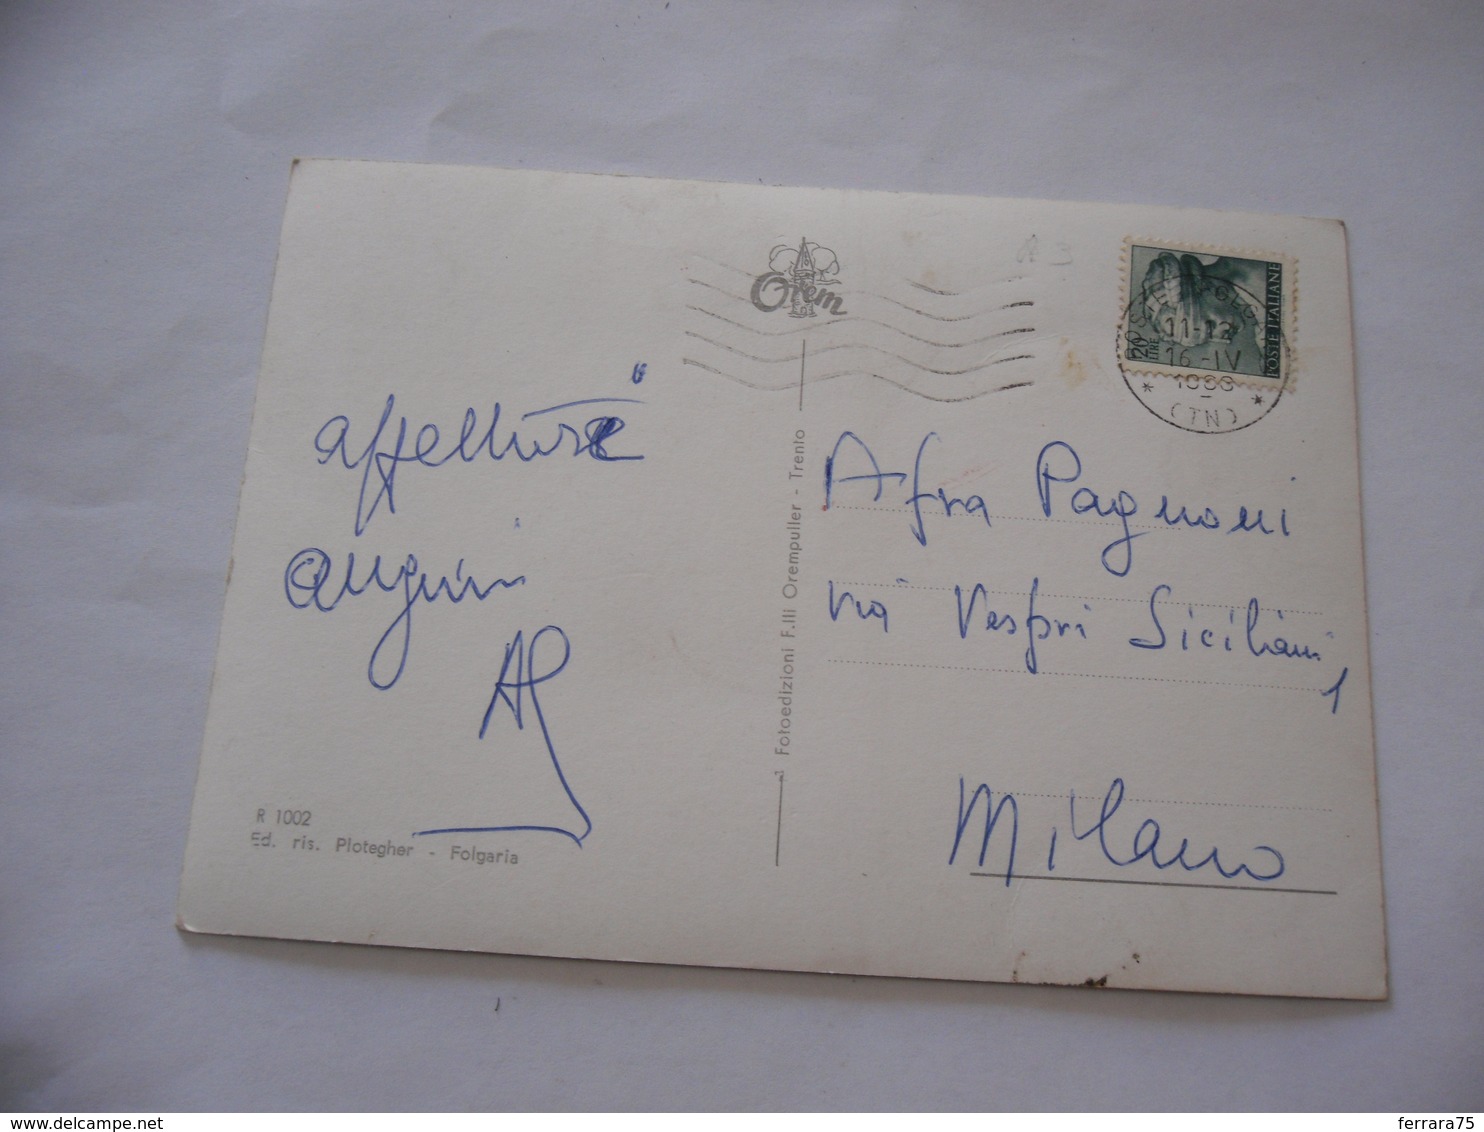 Orem
POSTE ITALIANE
LIRE
20
11-12
16-IV
(TN)
affettuosi
auguri
AP
Afra Pagnoni
via Vespri Siciliani
1
Milano
Fotoedizioni F.lli Orempuller - Trento
R 1002
Ed. ris. Plotegher - Folgaria
delcampe.net
ferrara75